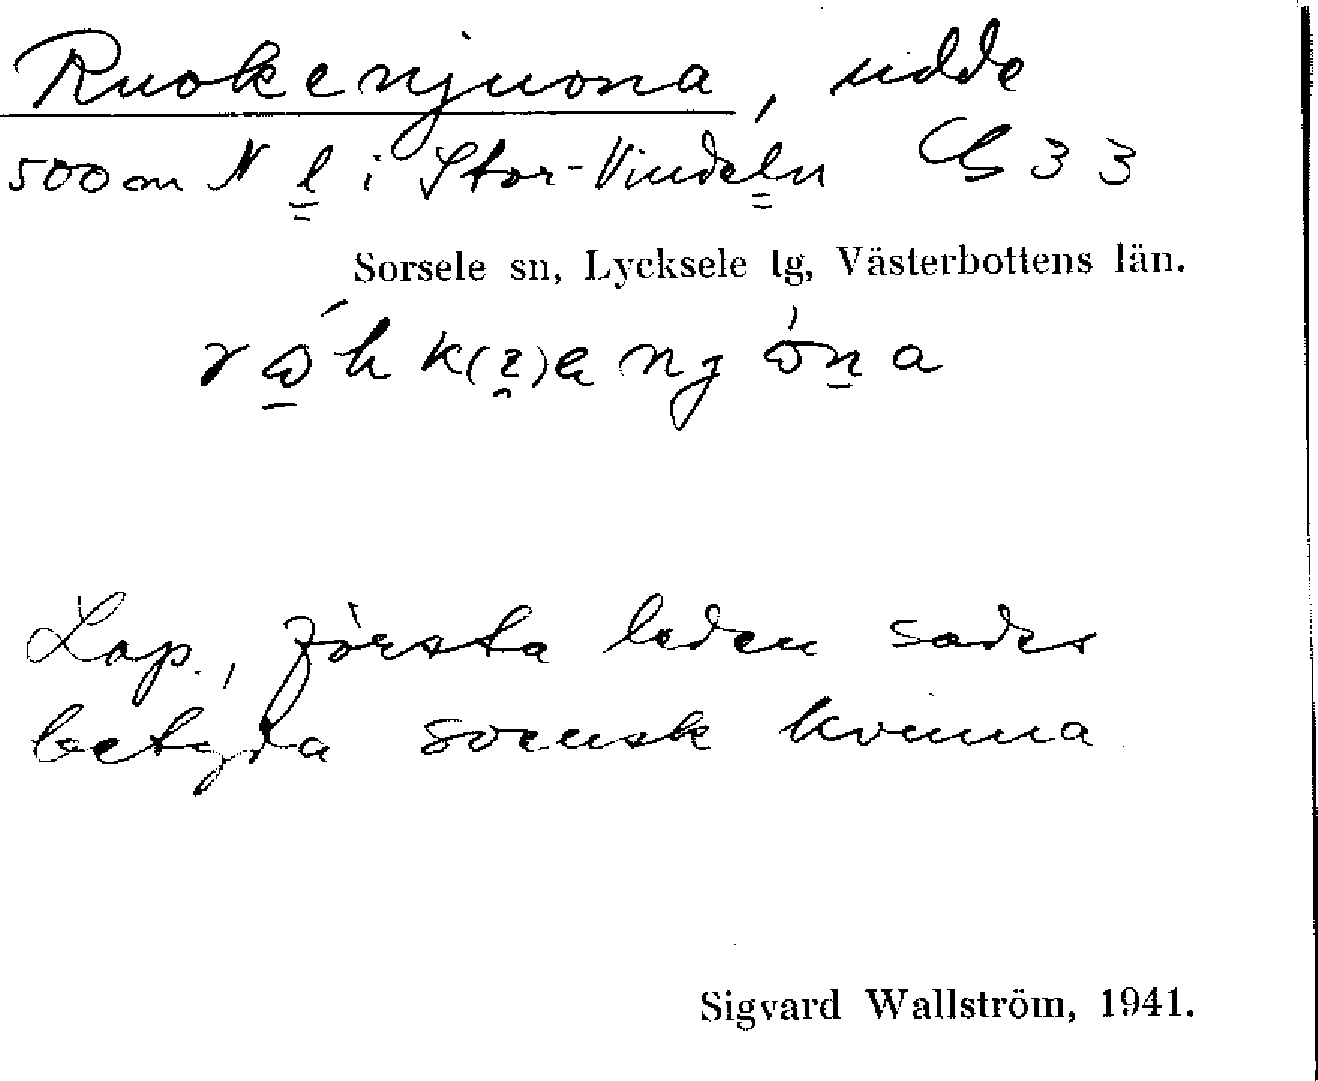 Ruokenjuona, udde
500 m N l i Stor-Vindeln G 33
Sorsele sn, Lycksele lg, Västerbottens län.
Lap., första leden sades
betyda svensk kvinna
Sigvard Wallström, 1941.